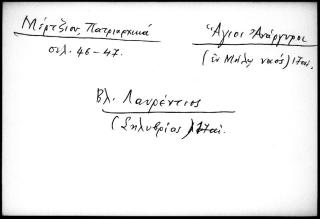 Μέρτζιου, Πατριαρχικά
σελ. 46-47.
Ἅγιοι Ἀνάργυροι
(ἐν Μάλῃ ναός) 17αι.
Βλ. Λαυρέντιος
(Σηλυβρίας) 17αι.